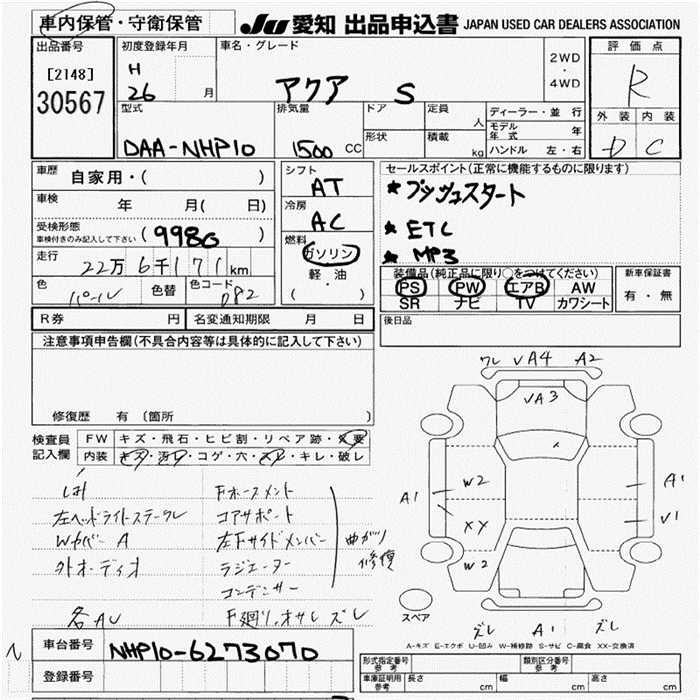 車内保管・守衛保管
JU 愛知 出品申込書 JAPAN USED CAR DEALERS ASSOCIATION
出品番号
[2148]
30567
初度登録年月
H
26 月
車名・グレード
アクア S
2WD
・
4WD
評価点
R
外装 内装
D C
型式
DAA-NHP10
排気量
1500 CC
ドア
形状
定員
人
積載
kg
ディーラー・並行
モデル年式 年
ハンドル 左・右
車歴
自家用・( )
車検
年 月( 日)
受検形態
車検付きのみ記入して下さい
(9980)
走行
22万6千171km
色
パール
色替
色コード
082
シフト
AT
冷房
AC
燃料
ガソリン
軽・油
( )
セールスポイント(正常に機能するものに限ります)
★プッシュスタート
★ETC
★MP3
装備品(純正品に限り○をつけてください)
PS PW エアB AW
SR ナビ TV カワシート
新車保証書
有・無
R券 円
名変通知期限 月 日
後日品
注意事項申告欄(不具合内容等は具体的に記入して下さい)
修復歴 有 〔箇所 〕
検査員
記入欄
FW キズ・飛石・ヒビ割・リペア跡・交要
内装 キズ・汚レ・コゲ・穴・スレ・キレ・破レ
左ヘッドライトステークレ
Wカバー A
外オーディオ
各AU
Fホースメント
コアサポート
左Fサイドメンバー
ラジエーター
コンデンサー
曲がり
修復
F廻り、オサレ ズレ
ワレ VA4 A2
VA3
W2
XX
W2
A1
A1
V1
スペア
ズレ A1 ズレ
A-キズ E-エクボ U-凹み W-補修跡 S-サビ C-腐食 XX-交換済
車台番号
NHP10-6273070
登録番号
形式指定番号
参考
類別区分番号
参考
車庫証明用
参考
長さ cm
幅 cm
高さ cm